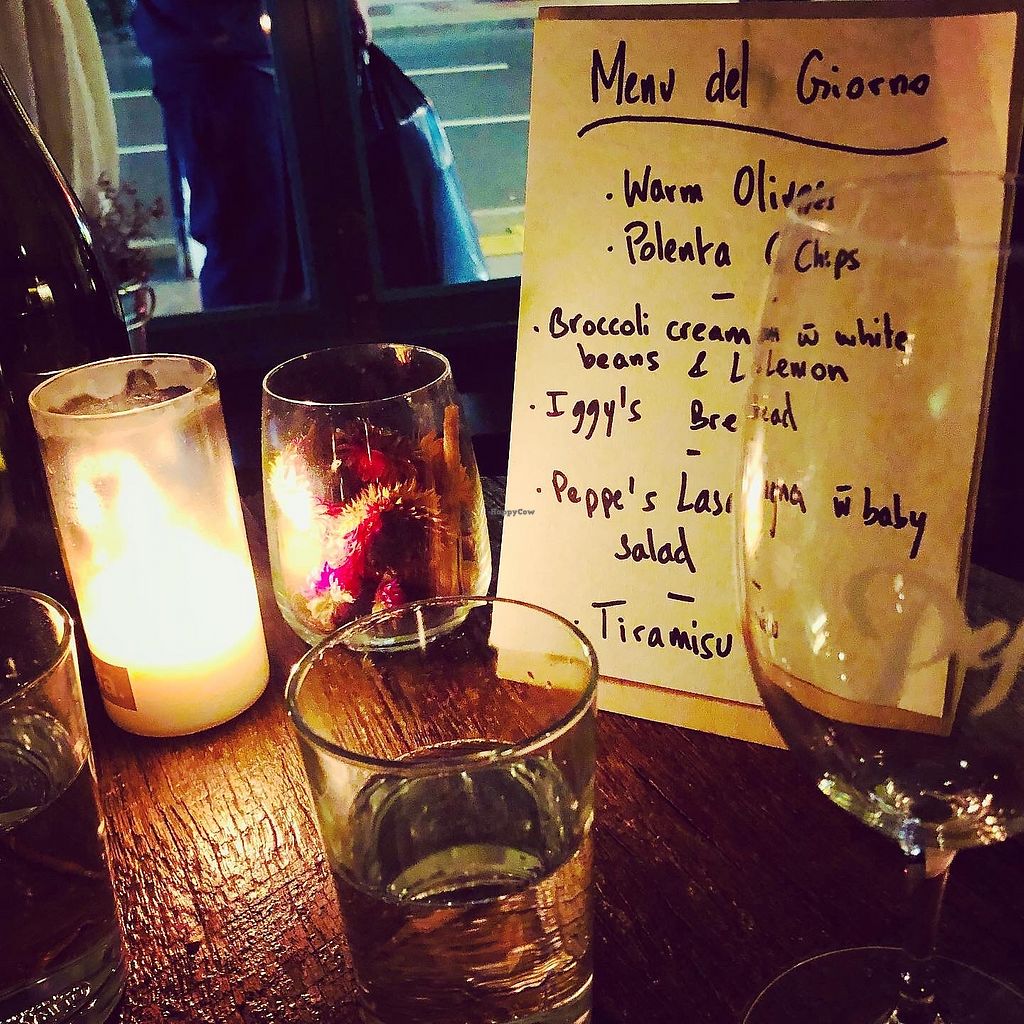 Menu del Giorno
· Warm Olives
· Polenta Chips
–
· Broccoli cream w̄ white
beans & Lemon
· Iggy's Bread
–
· Peppe's Lasagna w̄ baby
salad
–
· Tiramisu
HappyCow